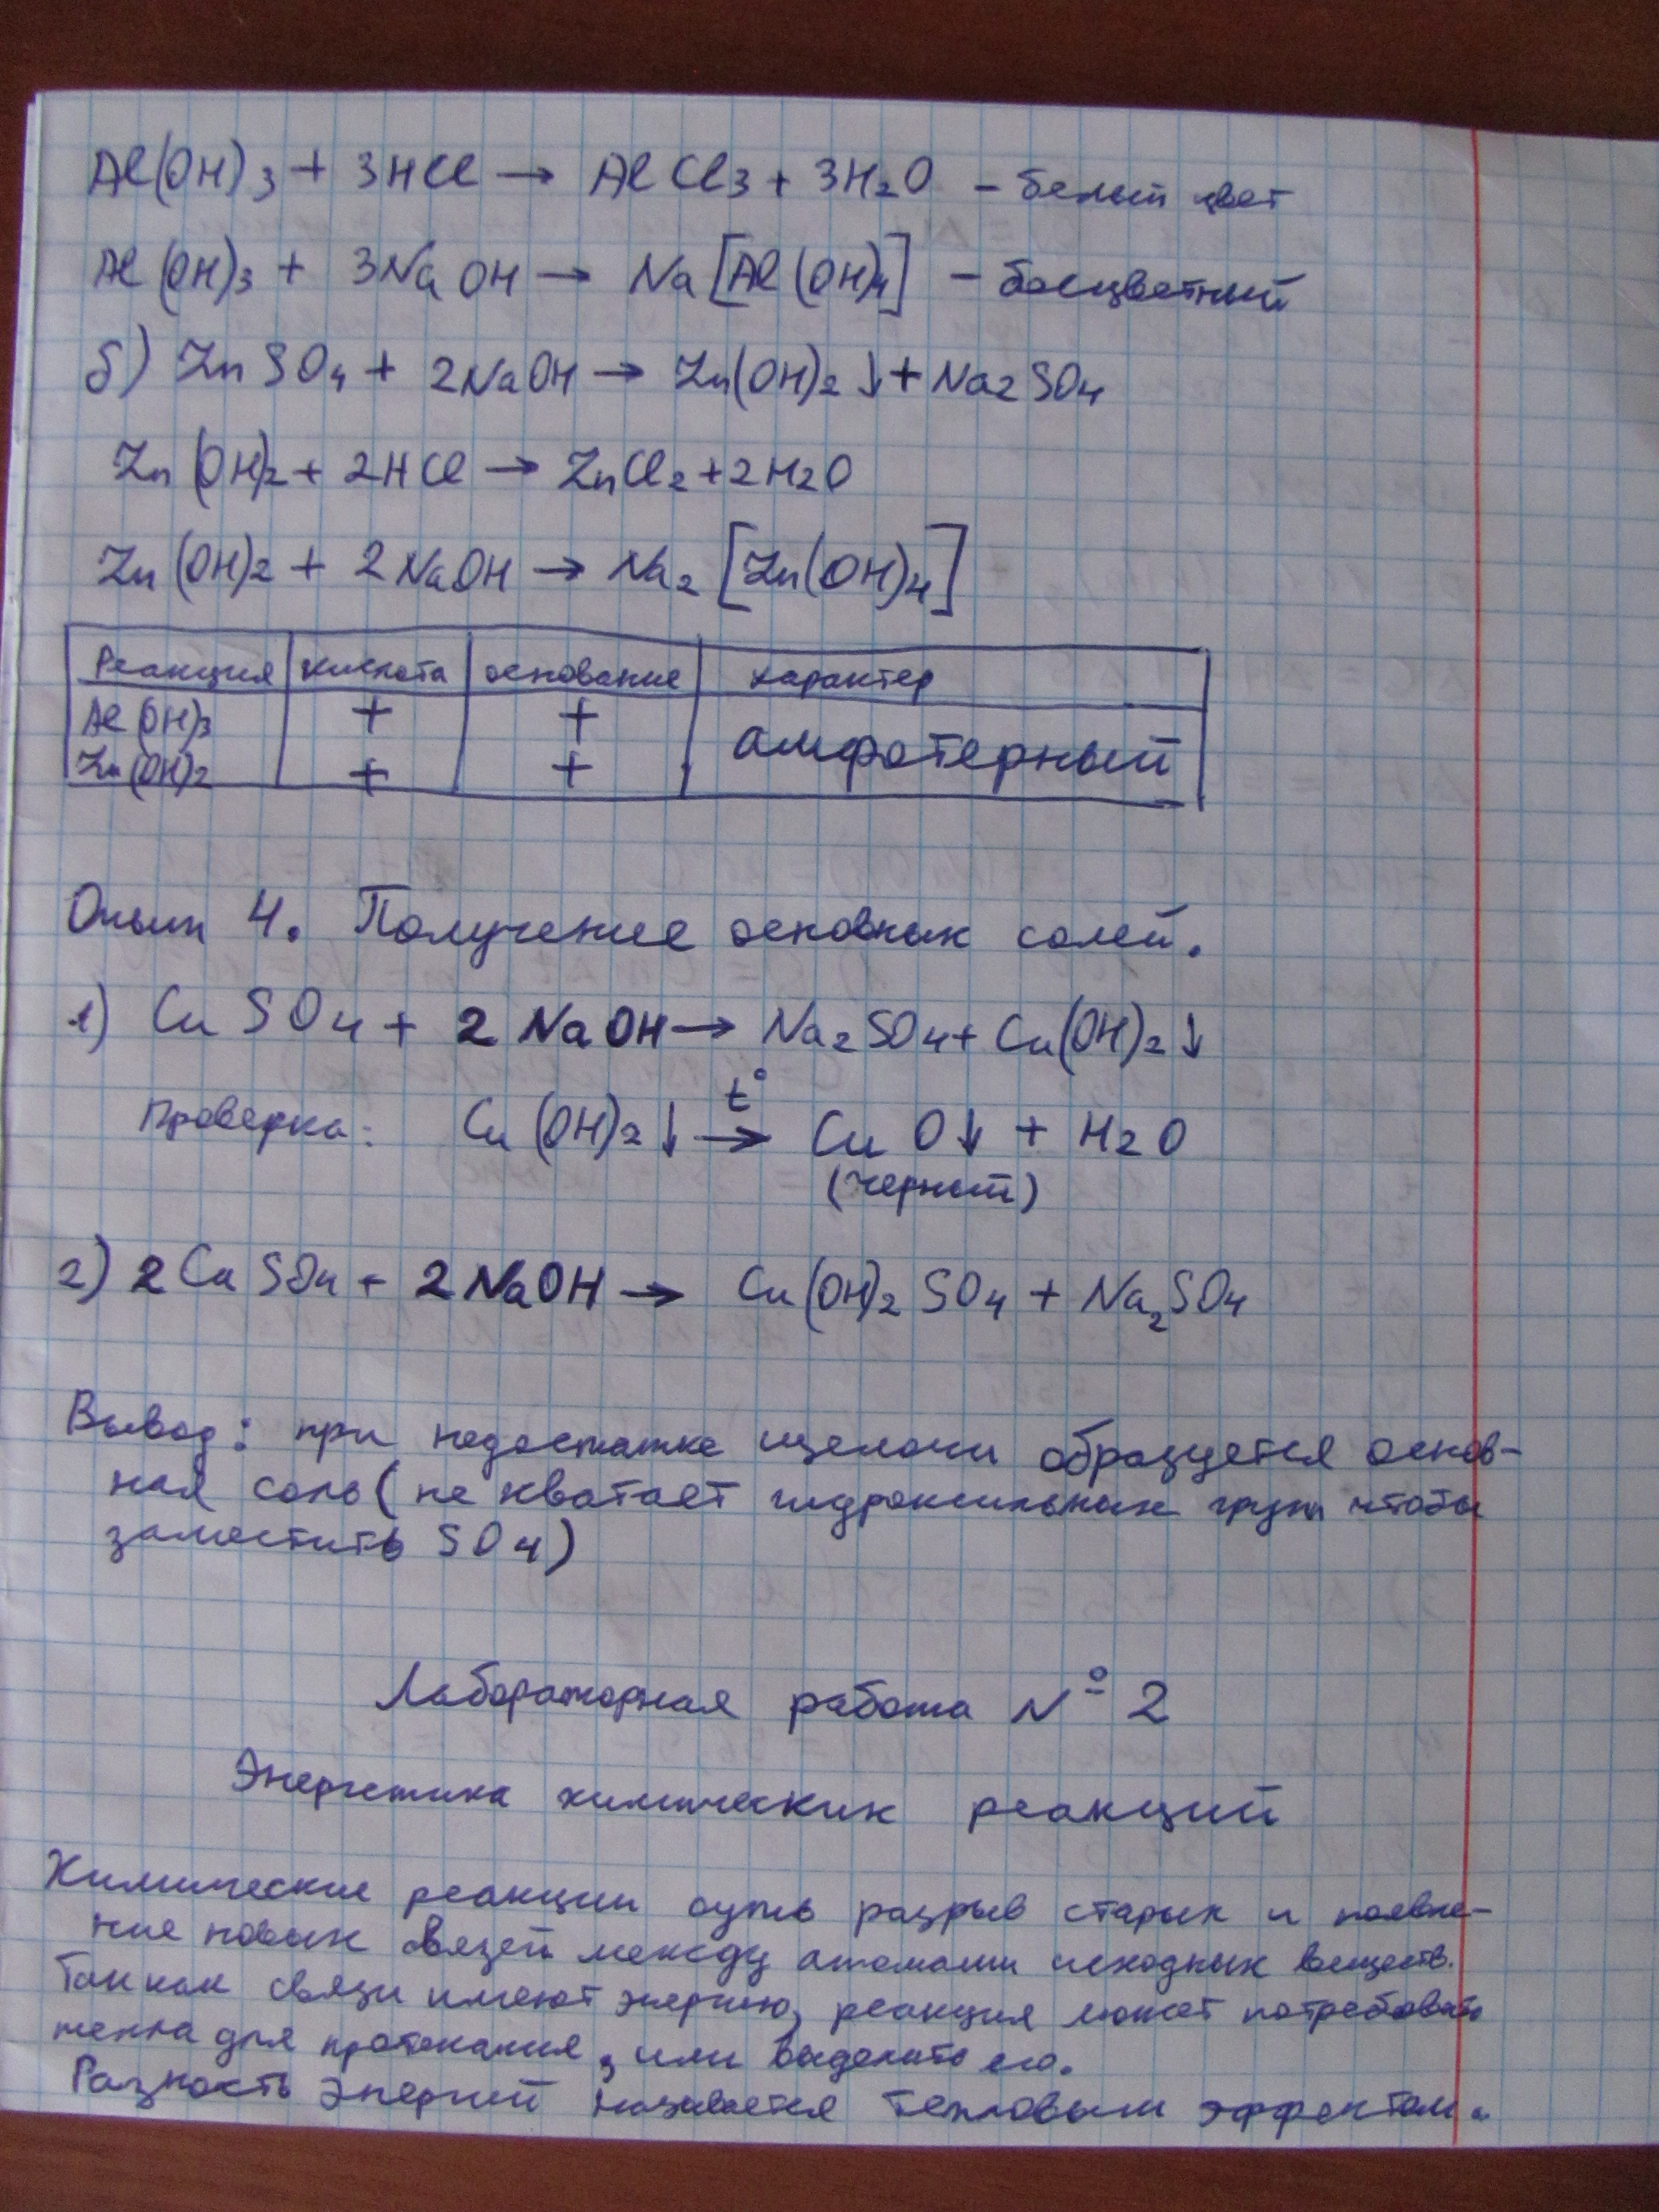 Al(OH)3 + 3HCl → AlCl3 + 3H2O - белый цвет
Al(OH)3 + 3NaOH → Na[Al(OH)4] - бесцветный
б) ZnSO4 + 2NaOH → Zn(OH)2↓ + Na2SO4
Zn(OH)2 + 2HCl → ZnCl2 + 2H2O
Zn(OH)2 + 2NaOH → Na2[Zn(OH)4]
Реакция кислота основание характер
Al(OH)3 + + амфотерный
Zn(OH)2 + +
Опыт 4. Получение основных солей.
1) CuSO4 + 2NaOH → Na2SO4 + Cu(OH)2↓
Проверка: Cu(OH)2↓ t°→ CuO↓ + H2O
(черный)
2) 2CuSO4 + 2NaOH → Cu(OH)2SO4 + Na2SO4
Вывод: при недостатке щелочи образуется основ-
ная соль (не хватает гидроксильных групп чтобы
заместить SO4)
Лабораторная работа № 2
Энергетика химических реакций
Химические реакции суть разрыв старых и появле-
ние новых связей между атомами исходных веществ.
Так как связи имеют энергию, реакция может потребовать
тепла для протекания, или выделить его.
Разность энергий называется тепловым эффектом.